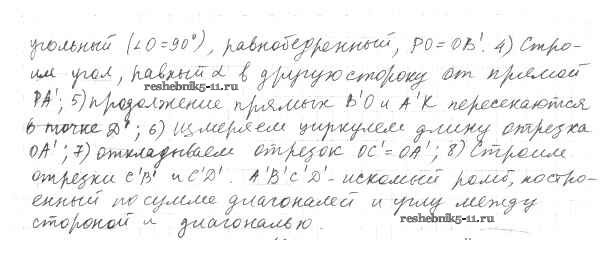 угольный (∠O=90°), равнобедренный, PO=OB'. 4) Стро-
им угол, равный α в другую сторону от прямой
PA'; 5) продолжение прямых B'O и A'K пересекаются
reshebnik5-11.ru
в точке D'; 6) Измеряем циркулем длину отрезка
OA'; 7) откладываем отрезок OC'=OA'; 8) Строим
отрезки C'B' и C'D'. A'B'C'D' - искомый ромб, постро-
енный по сумме диагоналей и углу между
стороной и диагональю.
reshebnik5-11.ru